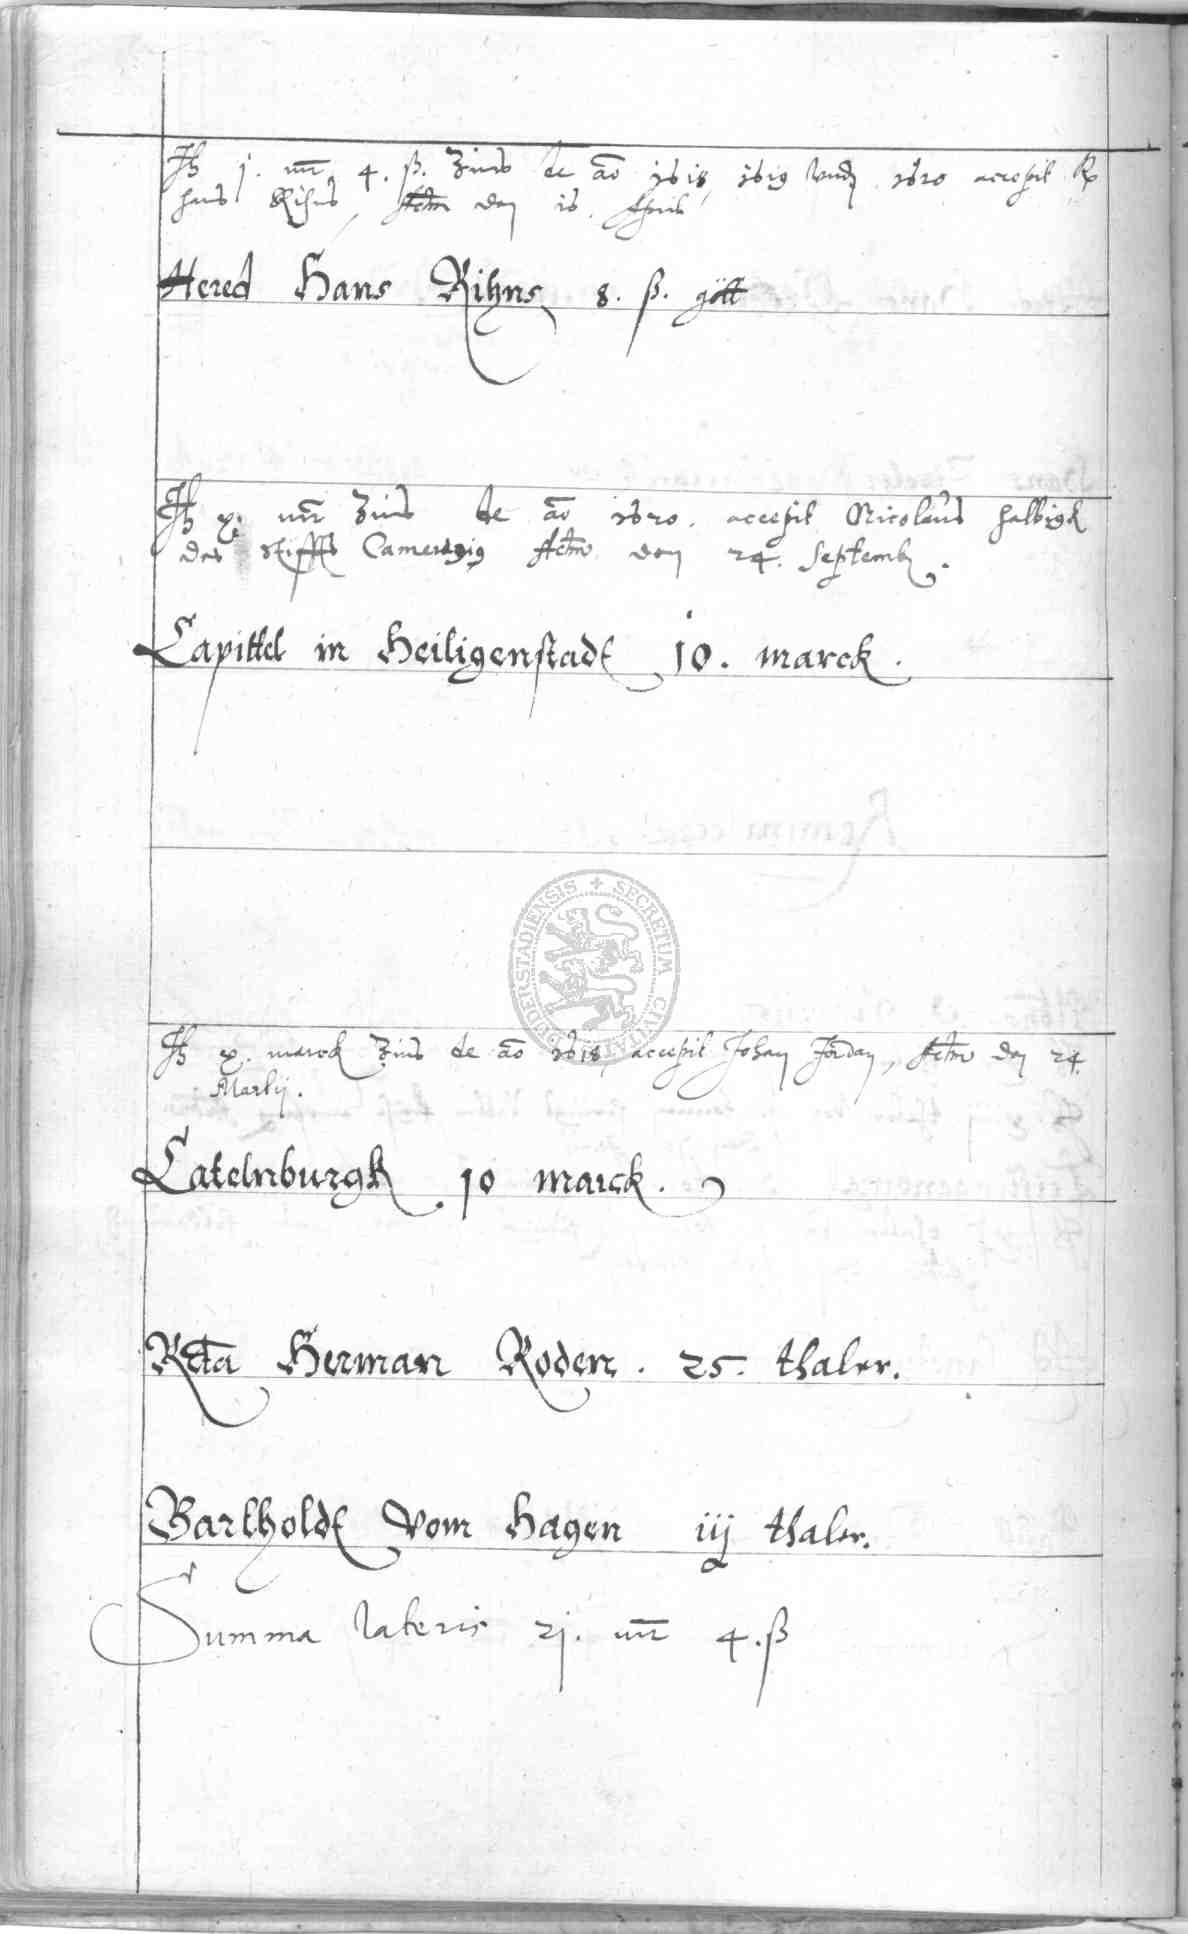 j. mr 4. ß. Zins de ao 1618, 1619 undt 1620 accepit
Hans Rihns, Actm den 18. Aprilis
Hered Hans Rihns 8. ß. gött
x. mr Zins de ao 1620. accepit Nicolaus
des Stiffts Camerarius Actm den 24. Septemb.
Capittel in Heiligenstadt 10. marck.
SECRETUM CIVITATIS DUDERSTADIENSIS
x. marck Zins de ao 1618, accepit Johan Jordan, Actm den 24.
Martij.
Catelnburgk 10 marck.
Rcta Herman Roden. 25. thaler.
Bartholdt vom Hagen iij thaler.
Summa lateris 2j. mr 4. ß